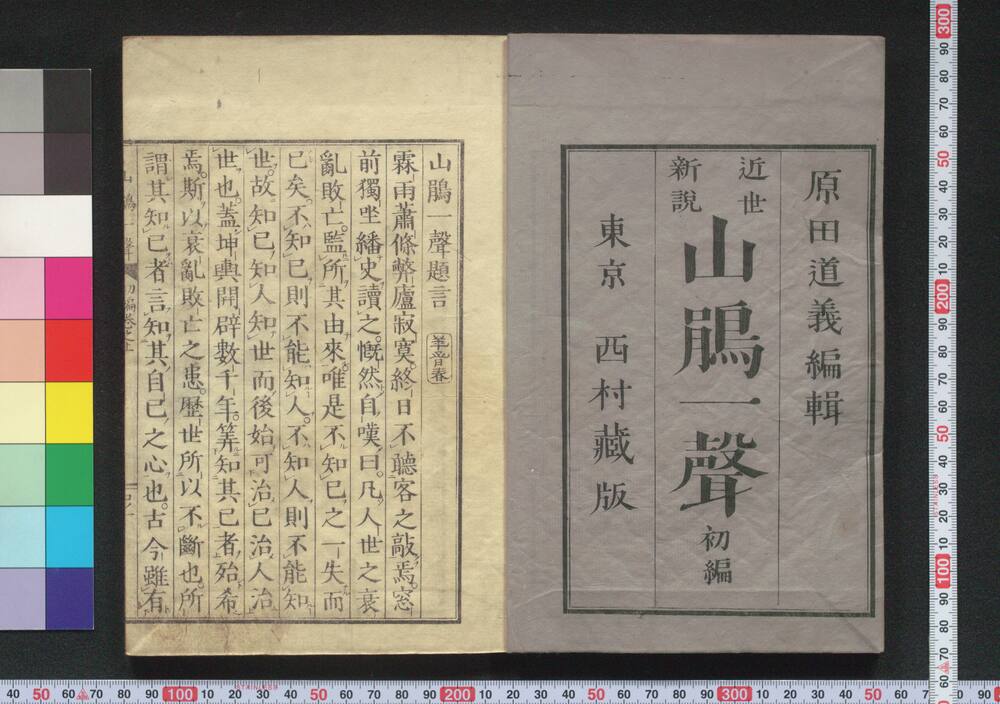 原田道義編輯
近世
新説
山鵑一聲 初編
東京 西村藏版
山鵑一聲題言
霖雨蕭條弊廬寂寞終日不聽客之敲焉。窓
前獨坐繙史讀之。慨然自嘆曰。凡人世之衰
亂敗亡。監所其由來。唯是不知己之一失而
已矣。不知己則不能知人。不知人則不能知
世。故知己知人知世而後始可治己治人治
世也。蓋坤輿開辟數千年。筭知其己者。殆希
焉。斯以衰亂敗亡之患。歷世所以不斷也。所
謂其知己者。言知其自己之心也。古今雖有
山鵑一聲 初編卷之上